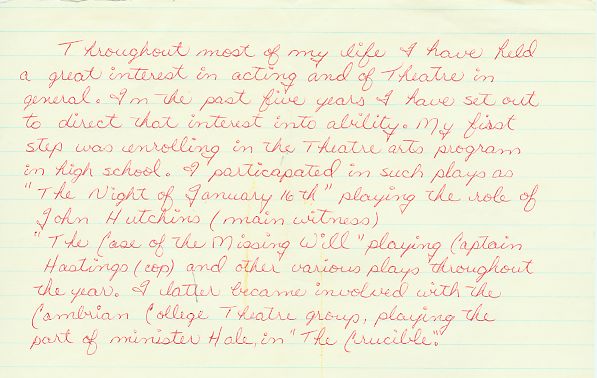 Throughout most of my life I have held
a great interest in acting and of Theatre in
general. In the past five years I have set out
to direct that interest into ability. My first
step was enrolling in the Theatre arts program
in high school. I participated in such plays as
"The Night of January 16th" playing the role of
John Hutchins (main witness)
"The Case of the Missing Will" playing Captain
Hastings (cop) and other various plays throughout
the year. I latter became involved with the
Cambrian College Theatre group, playing the
part of minister Hale, in "The Crucible".